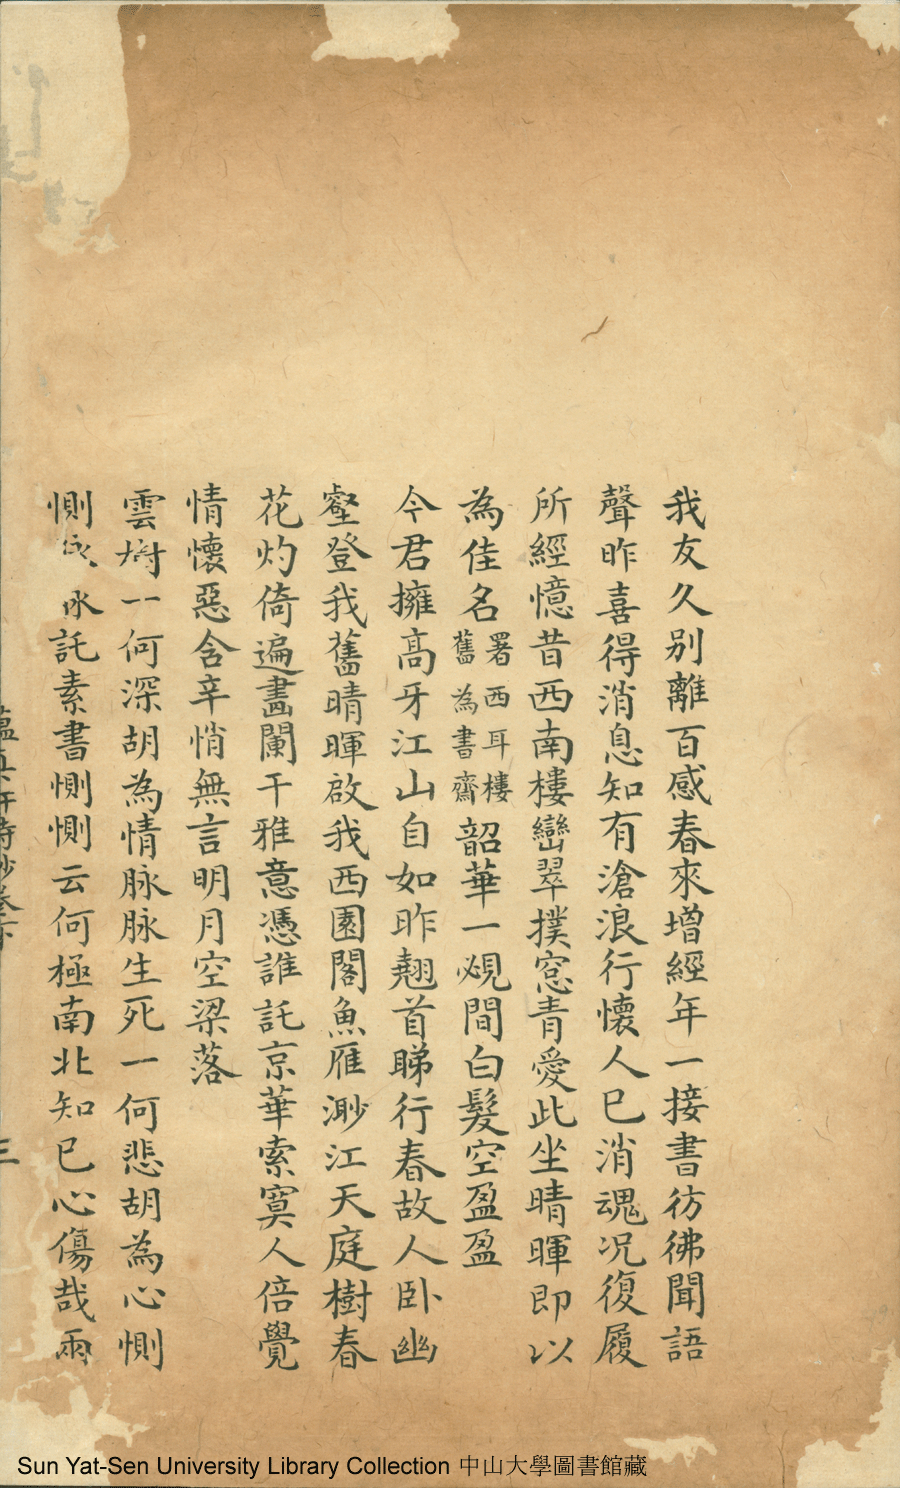 我友久別離百感春來增經年一接書彷彿聞語
聲昨喜得消息知有滄浪行懷人已消魂况復履
所經憶昔西南樓巒翠撲窓青愛此坐晴暉即以
為佳名署西耳樓舊為書齋韶華一覕間白髮空盈盈
今君擁高牙江山自如昨翹首睇行春故人卧幽
壑登我舊晴暉啟我西園閣魚雁渺江天庭樹春
花灼倚遍畫闌干雅意憑誰託京華索寞人倍覺
情懷惡含辛悄無言明月空梁落
雲樹一何深胡為情脉脉生死一何悲胡為心惻
惻 託素書惻惻云何極南北知已心傷哉雨
詩鈔卷下
三
Sun Yat-Sen University Library Collection 中山大學圖書館藏